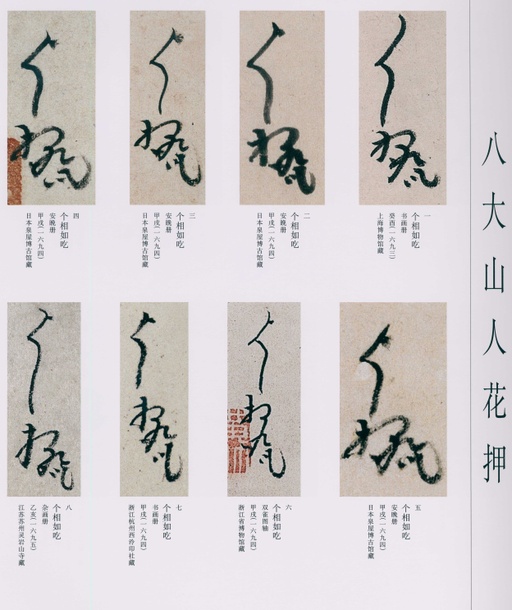 八大山人花押
一
个相如吃
书画册
癸酉(一六九三)
上海博物馆藏
二
个相如吃
安晚册
甲戌(一六九四)
日本泉屋博古馆藏
三
个相如吃
安晚册
甲戌(一六九四)
日本泉屋博古馆藏
四
个相如吃
安晚册
甲戌(一六九四)
日本泉屋博古馆藏
五
个相如吃
安晚册
甲戌(一六九四)
日本泉屋博古馆藏
六
个相如吃
双雀图轴
甲戌(一六九四)
浙江省博物馆藏
七
个相如吃
书画册
甲戌(一六九四)
浙江杭州西泠印社藏
八
个相如吃
杂画册
乙亥(一六九五)
江苏苏州灵岩山寺藏